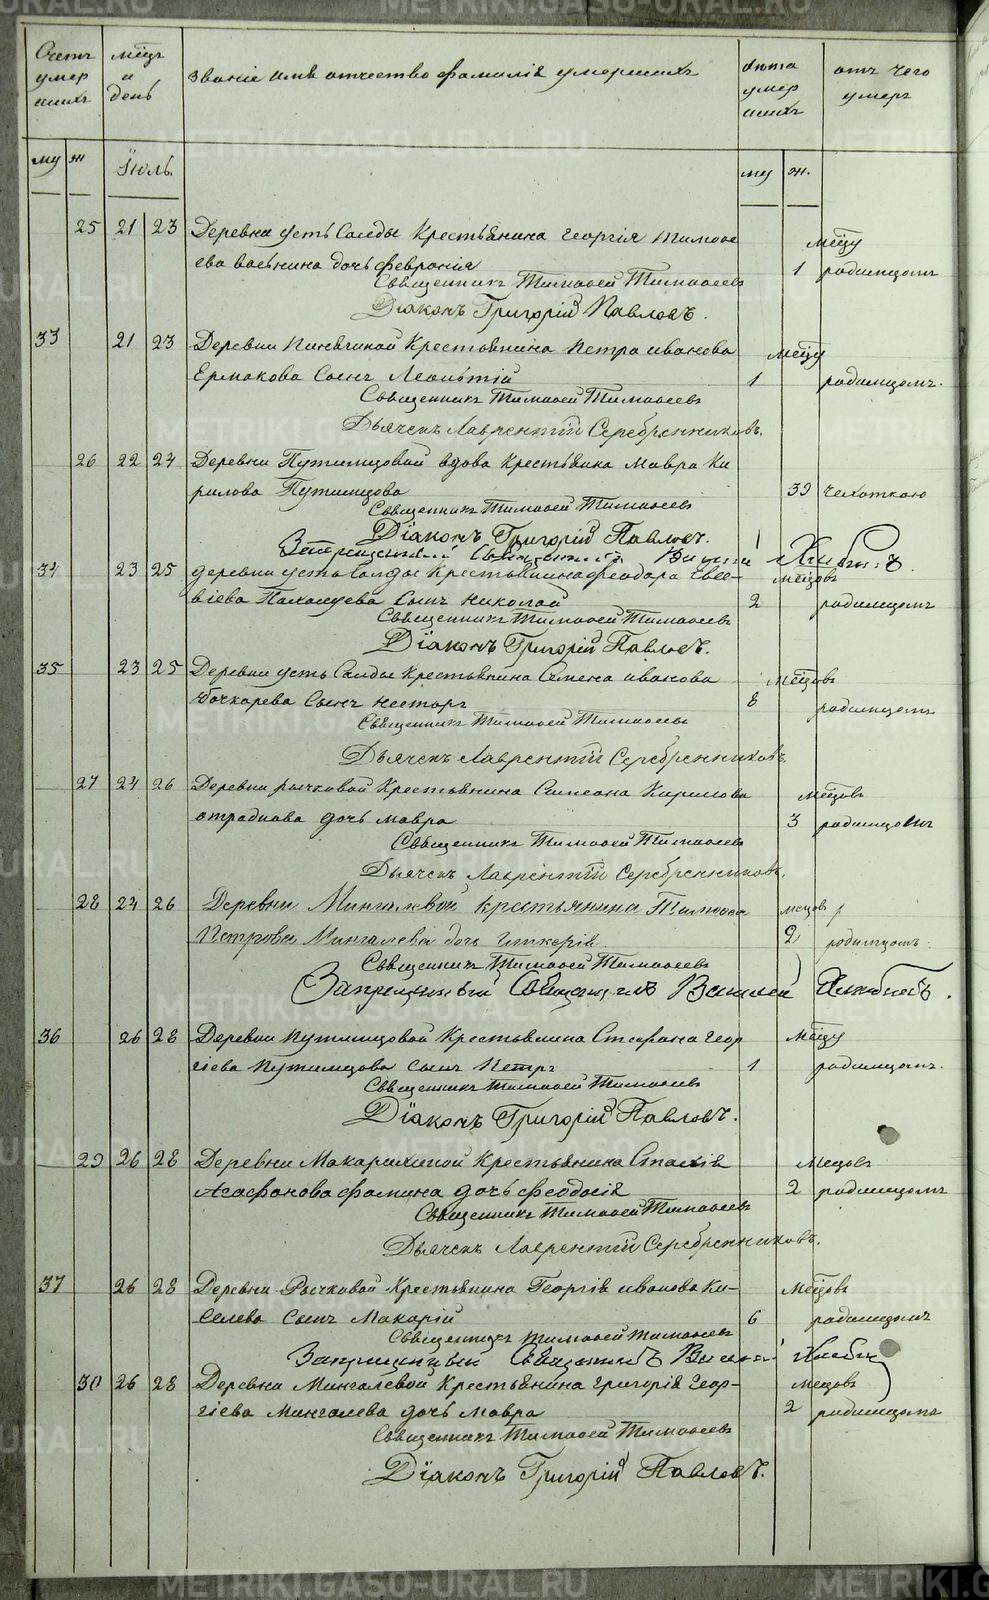 Счетъ умер шихъ
мѣцъ и день
званіе имя отчество фамилія умершихъ
лѣта умер шихъ
отъ чего умеръ
му ж Іюль. му ж.
25 21 23 Деревни усть Салды Крестьянина Георгія Тимофе мѣцу
ева дочь Февронія 1 родимцомъ
Священникъ Тимофей Тимофеевъ
Діаконъ Григорій Павловъ.
33 21 23 Деревни Крестьянина Петра иванова мѣцу
Ермакова Сынъ Леонтій 1 родимцомъ.
Священникъ Тимофей Тимофеевъ
Дьячекъ Лаврентій Серебренниковъ.
26 22 24 Деревни Путимцовой вдова Крестьянка Мавра Ки
рилова Путимцова 39 чехоткою
Священникъ Тимофей Тимофеевъ
Діаконъ Григорій Павловъ.
Запрещенный Священникъ Василій
34 23 25 деревни усть Салды Крестьянина Феодора Евсе- мецовъ
віева Сынъ Николай 2 родимцомъ
Священникъ Тимофей Тимофеевъ
Діаконъ Григорій Павловъ.
35 23 25 Деревни усть Салды Крестьянина Семена иванова Мецовъ
Бочкарева Сынъ Несторъ 8 родимцомъ
Священникъ Тимофей Тимофеевъ
Дьячекъ Лаврентій Серебренниковъ.
27 24 26 Деревни рычковой Крестьянина Симеона Кирилова мецовъ
отраднова дочь мавра 3 родимцомъ
Священникъ Тимофей Тимофеевъ
Дьячекъ Лаврентій Серебренниковъ.
28 24 26 Деревни Мингалевой крестьянина Тимофея мецов
Петрова Мингалева дочь 2 родимцомъ.
Священникъ Тимофей Тимофеевъ
Запрещенный Священникъ Василий
36 26 28 Деревни Путимцовой Крестьянина Стефана Геор мѣцу
гіева Путимцова сынъ Петръ 1 родимцомъ.
Священникъ Тимофей Тимофеевъ
Діаконъ Григорій Павловъ.
29 26 28 Деревни Макарихиной Крестьянина Стахія Мецовъ
Агафонова фомина дочь Феодосія 2 родимцомъ
Священникъ Тимофей Тимофеевъ
Дьячекъ Лаврентій Серебренниковъ.
37 26 28 Деревни Рычковой Крестьянина Георгія иванова Ки- Мецовъ
селева Сынъ Макарій 6 родимцомъ
Священникъ Тимофей Тимофеевъ
Запрещенный Священникъ Василій
30 26 28 Деревни Мингалевой Крестьянина григорія Геор- мецовъ
гіева Мингалева дочь мавра 2 родимцомъ
Священникъ Тимофей Тимофеевъ
Діаконъ Григорій Павловъ.
METRIKI.GASO-URAL.RU